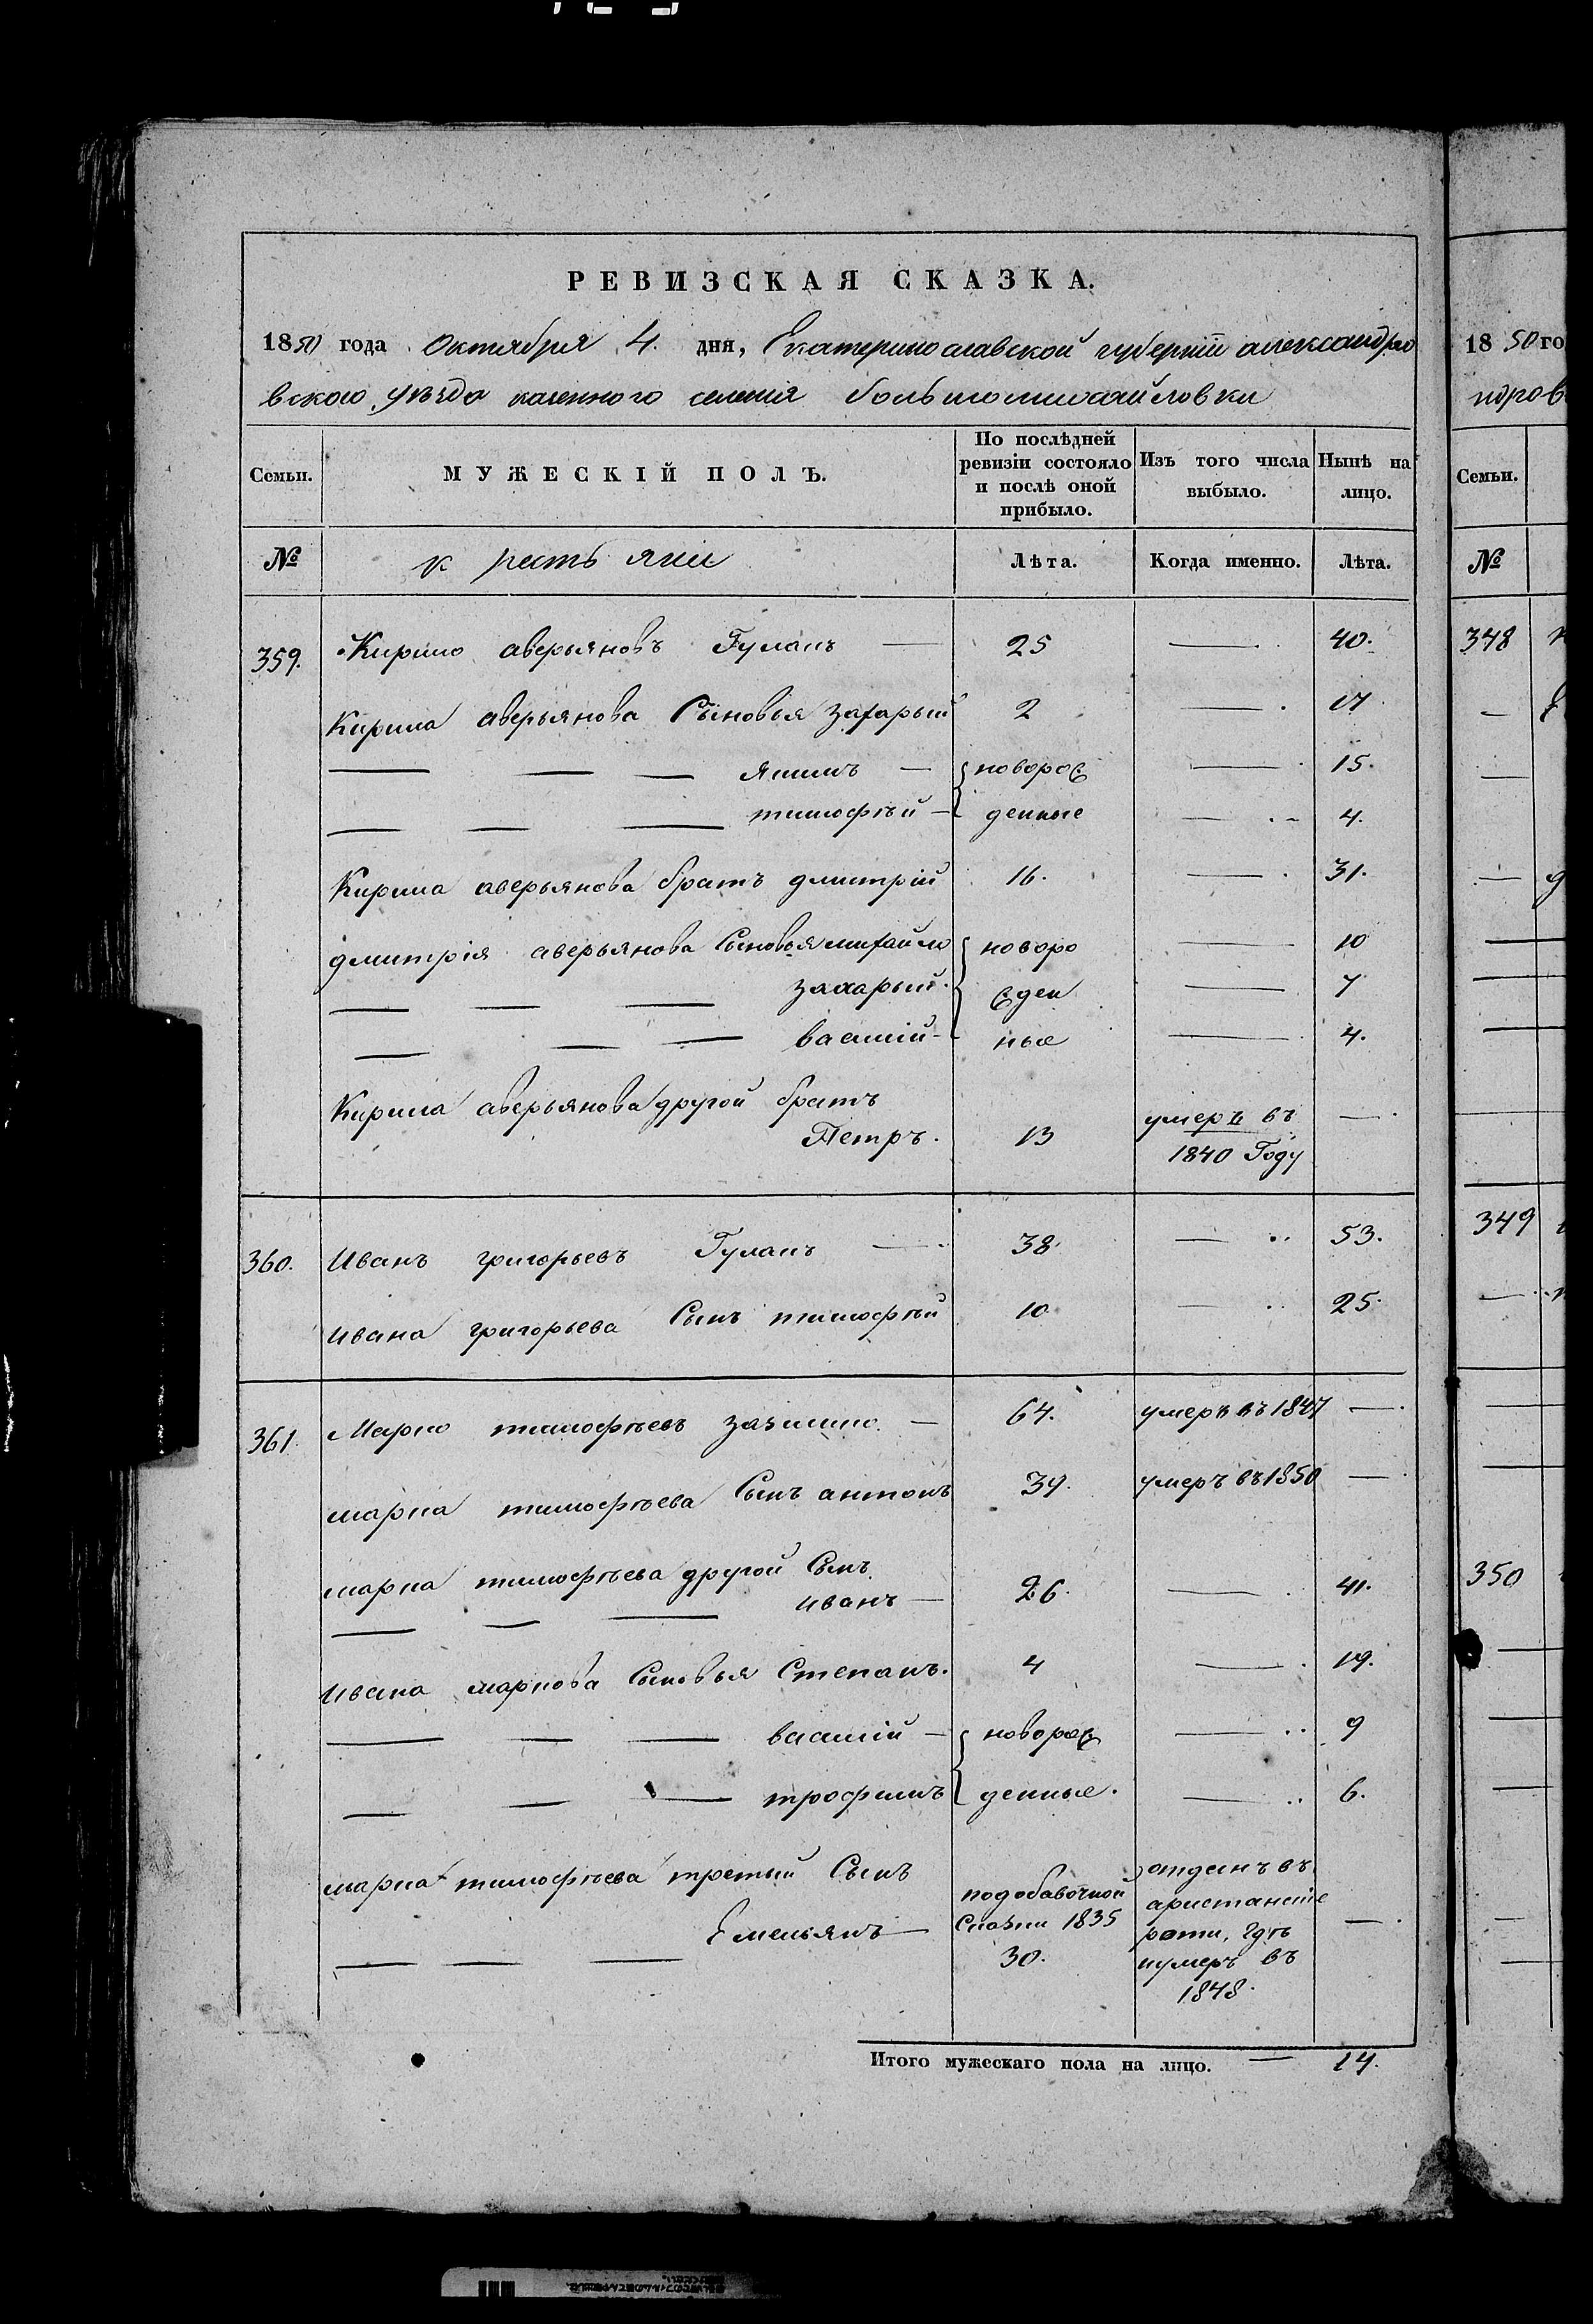 РЕВИЗСКАЯ СКАЗКА.
1850 года Октября 4. дня, Екатеринославской губерніи александро
вского уѣзда казенного селенія большомихайловки
Семьи. МУЖЕСКІЙ ПОЛЪ. По послѣдней ревизіи состояло и послѣ оной прибыло. Изъ того числа выбыло. Нынѣ на лицо.
№ крестьяни Лѣта. Когда именно. Лѣта.
359. Кирило аверьяновъ Гулакъ — 25 — 40.
Кирила аверьянова Сыновья Захарый 2 — 17
— — — якимъ — новорож — 15.
— — — тимофѣй — денные — 4.
Кирила аверьянова братъ дмитрій 16. — 31.
дмитрія аверьянова Сыновья михайло новоро — 10
— — — захарый. жден — 7
— — — василій — ные — 4.
Кирила аверьянова другой братъ
Петръ. 13 умеръ въ 1840 Году —
360. Иванъ григорьевъ Гулакъ — 38. — 53.
ивана григорьева Сынъ тимофѣй 10 — 25.
361. Марко тимофѣевъ — 64. умеръ въ 1847 —
марка тимофѣева Сынъ антонъ 39. умеръ въ 1850 —
марка тимофѣева другой Сынъ
— — — иванъ — 26. — 41.
ивана маркова Сыновья Степанъ. 4 — 19.
— — — василій — новорож — 9
— — — трофимъ денные. — 6.
марка тимофѣева третый Сынъ
— — — Емельянъ — подобавочной Сказки 1835 30. отданъ въ аристанскіе роти, гдѣ иумеръ въ 1848. —
Итого мужескаго пола на лицо. — 14.
18 50 го
ндров
Семьи.
№
348
349
350